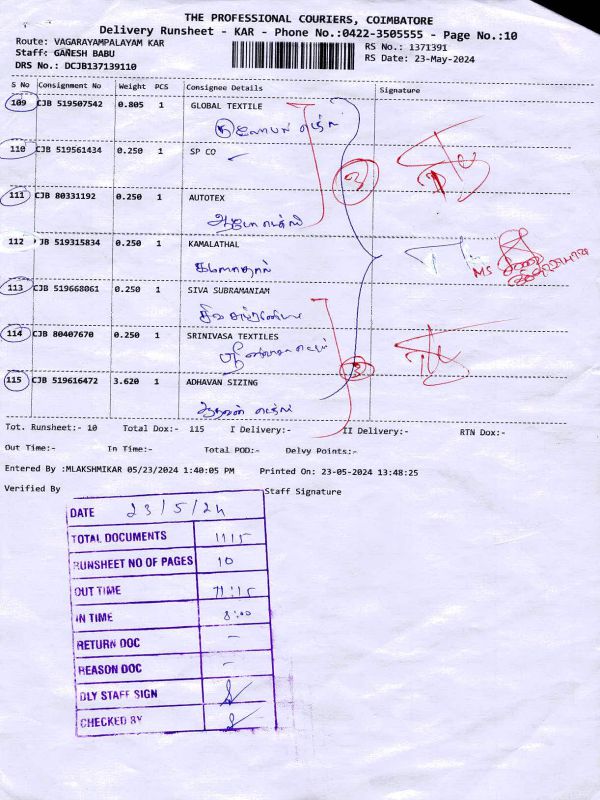 THE PROFESSIONAL COURIERS, COIMBATORE
Delivery Runsheet - KAR - Phone No.:0422-3505555 - Page No.:10
Route: VAGARAYAMPALAYAM KAR
RS No.: 1371391
Staff: GANESH BABU
RS Date: 23-May-2024
DRS No.: DCJB137139110
S No Consignment No Weight PCS Consignee Details Signature
109 CJB 519507542 0.805 1 GLOBAL TEXTILE
110 CJB 519561434 0.250 1 SP CO
111 CJB 80331192 0.250 1 AUTOTEX
112 JB 519315834 0.250 1 KAMALATHAL
கமலாதாள்
MS
113 CJB 519668061 0.250 1 SIVA SUBRAMANIAM
114 CJB 80407670 0.250 1 SRINIVASA TEXTILES
115 CJB 519616472 3.620 1 ADHAVAN SIZING
Tot. Runsheet:- 10 Total Dox:- 115 I Delivery:- II Delivery:- RTN Dox:-
Out Time:- In Time:- Total POD:- Delvy Points:-
Entered By :MLAKSHMIKAR 05/23/2024 1:40:05 PM Printed On: 23-05-2024 13:48:25
Verified By Staff Signature
DATE 23/5/24
TOTAL DOCUMENTS
RUNSHEET NO OF PAGES 10
OUT TIME
IN TIME 8:00
RETURN DOC -
REASON DOC -
DLY STAFF SIGN
CHECKED BY